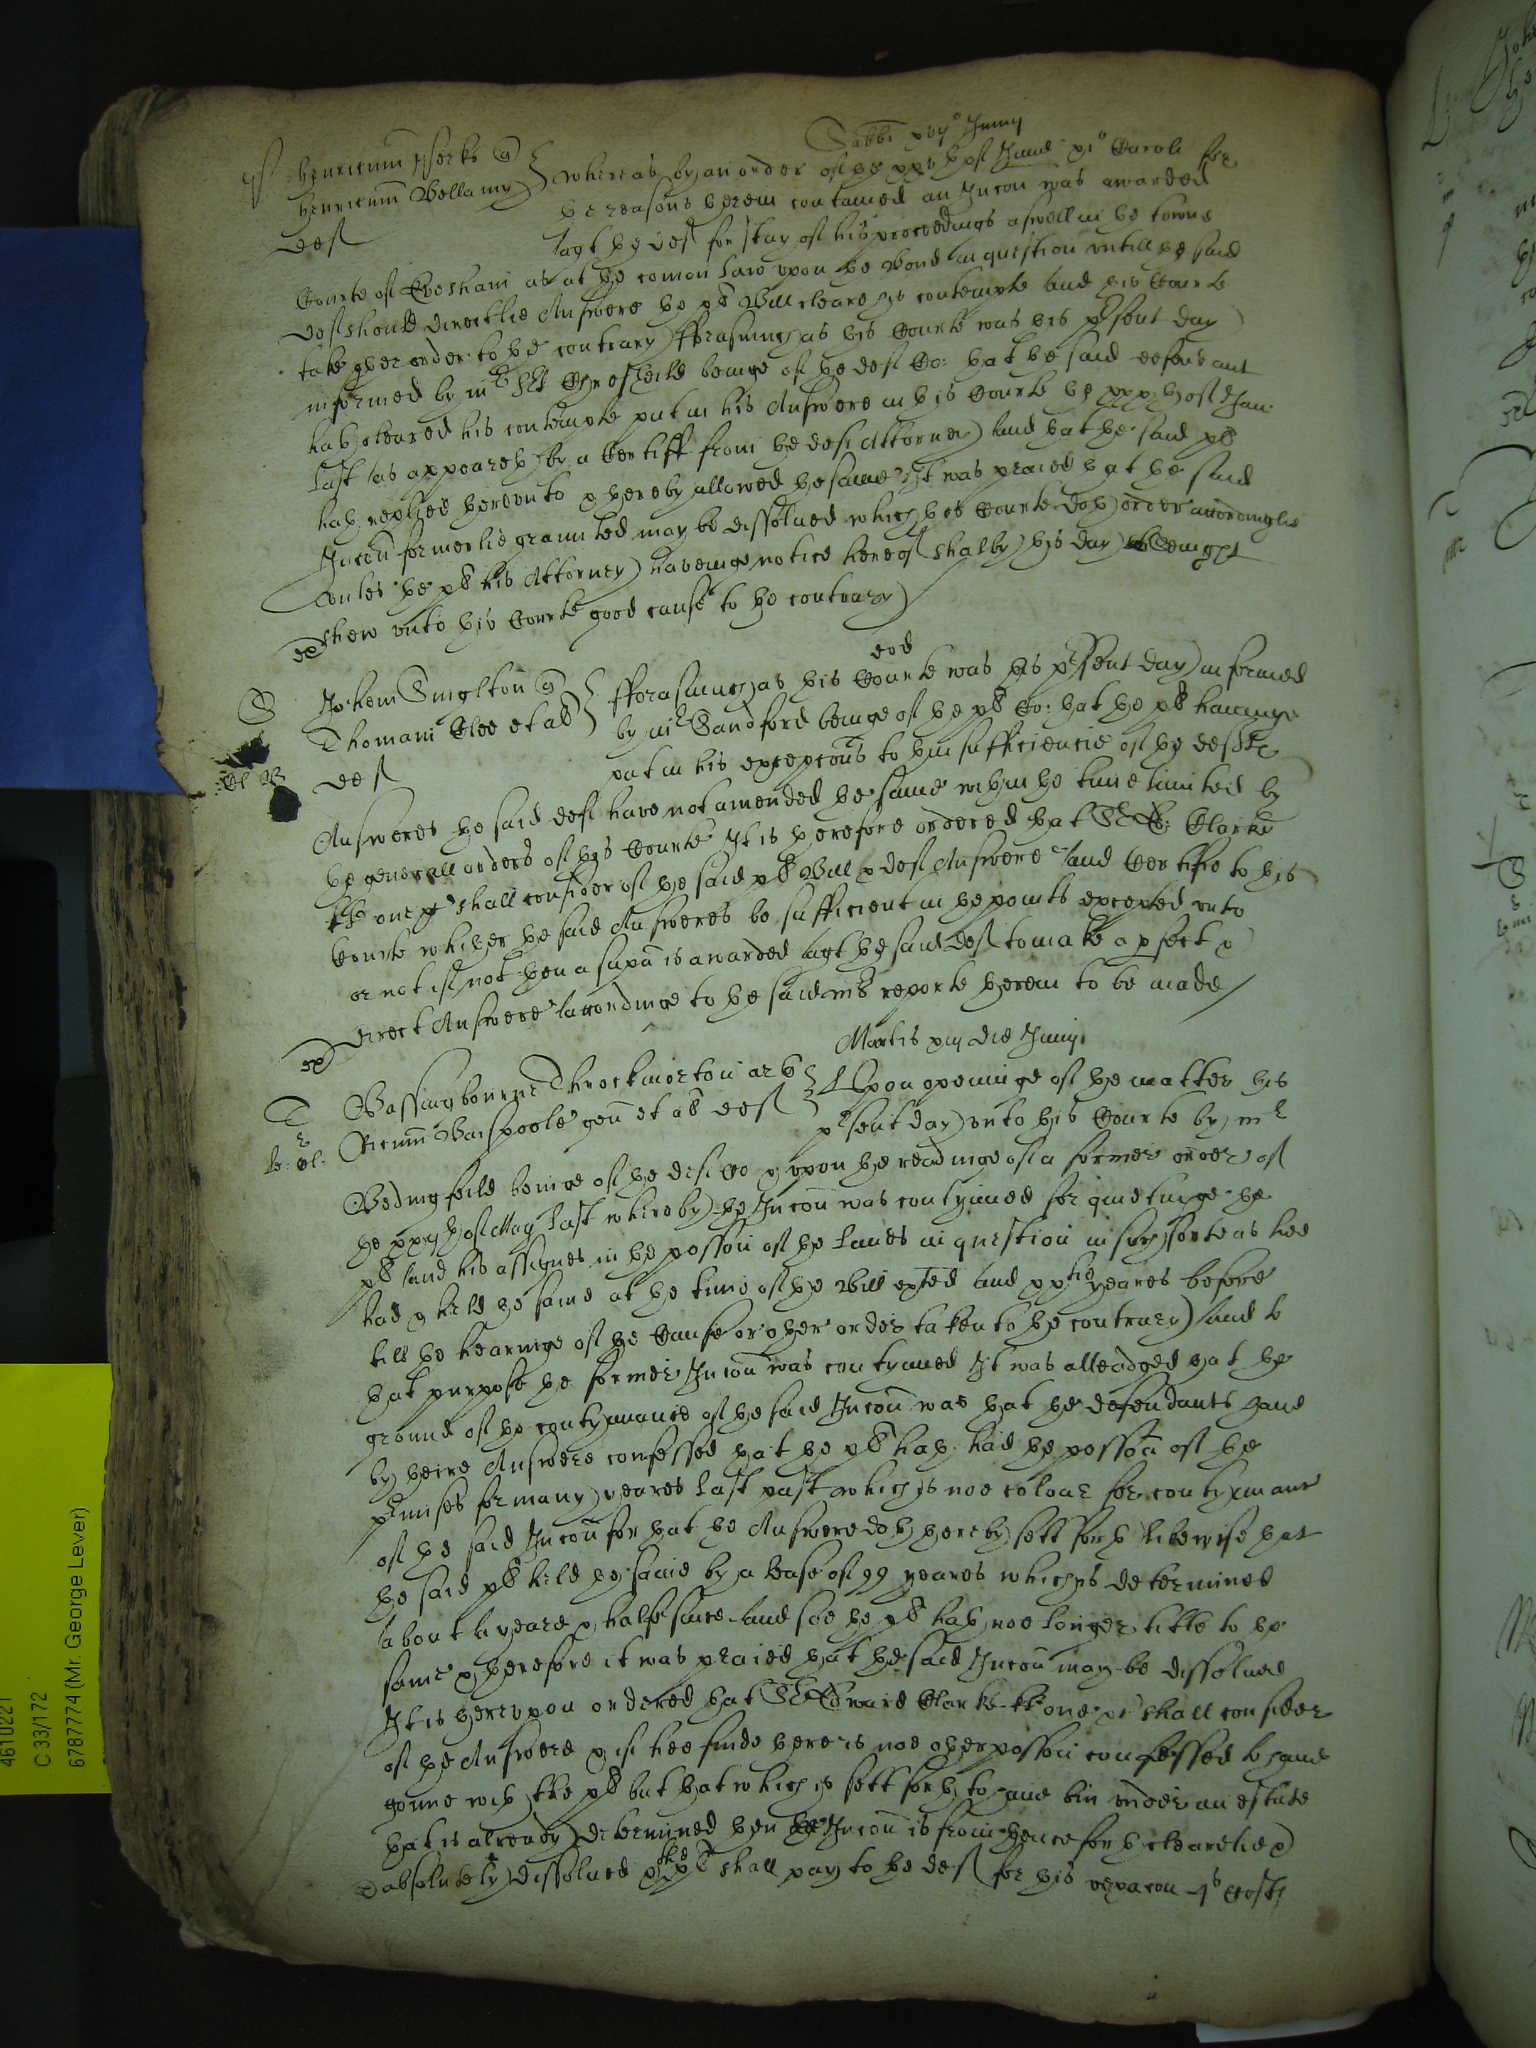 Sabbi xvij° Junij
Henricum quer
Henricum Bellamy
def
Whereas by an order of the xxth of June xi° Caroli for
the reasons therein contained an Inicon was awarded
agt the def for stay of his proceedings aswell in the towne
Courte of Evesham as at the comon law vpon the bond in question vntill the said
def should directlie Answere the pls Bill cleare his contempte and this Courte
take other order to the contrary fforasmuch as this Courte was this psent day
informed by mr beinge of the def Co: that the said defendant
hath cleared his contempte put in his Answere in this Courte the of Jan
last as appeareth by a Certiff from the def Attorney and that the said pl
hath replied therevnto & thereby allowed the same It was praied that the said
Inicon formerlie graunted may be dissolued which this Courte doth order accordinglie
vnles the pls his Attorney haveinge notice hereof shall by this day sevenight
shew vnto this Courte good cause to the contrary
eod
Johem Singlton quer
Thomam Clee et al
def
fforasmuch as this Courte was this psent day informed
by mr Sandford beinge of the pls Co: that the pl haueinge
put in his excepcons to thinsufficiencie of the defts
Answeres the said def have not amended the same within the time limited by
the generall orders of this Courte It is therefore ordered that Sr Ed: Clarke
kt one &c shall consider of the said pls Bill & def Answere and Certifie to this
Courte whither the said Answeres be sufficient in the points excepted vnto
or not if not then a supa is awarded agt the said def to make a pfect &
direct Answere accordinge to the said mrs reporte therein to be made
Martis die Junij
Bassingbourne Throckmorton ar quer
Ricum Walpoole gen et al def
Vpon openinge of the matter this
psent day vnto this Courte by mr
Bedingfeild beinge of the def Co & vpon the readinge of a former order of
the of May last whereby the Inicon was contynued for quietinge the
pl and his assignes in the possion of the lands in question in such sorte as hee
had & held the same at the time of the Bill exhted and yeares before
till the hearinge of the Cause or other order taken to the contrary and to
that purpose the former Inicon was contynued It was alleadged that the
ground of the contynuance of the said Inicon was that the defendants haue
by theire Answere confessed that the pl hath had the possion of the
pmises for many yeares last past which is noe colour for contynuance
of the said Inicon for that the Answere doth thereby sett forth likewise that
the said pl held the same by a lease of 99 yeares which is determined
about a yeare & halfe since and soe the pl hath noe longer title to the
same & therefore it was praied that the said Inicon may be dissolued
It is therevpon ordered that Sr Edward Clarke kt one &c shall consider
of the Answere & if hee finde there is noe other possion confessed to haue
gonne with the pl but that which is sett forth to haue bin vnder an estate
that is already determined then the Inicon is from henceforth clearelie &
absolutely dissolued & the pl shall pay to the def for this vexacon Costs
4610221
C 33/172
6787774 (Mr. George Lever)